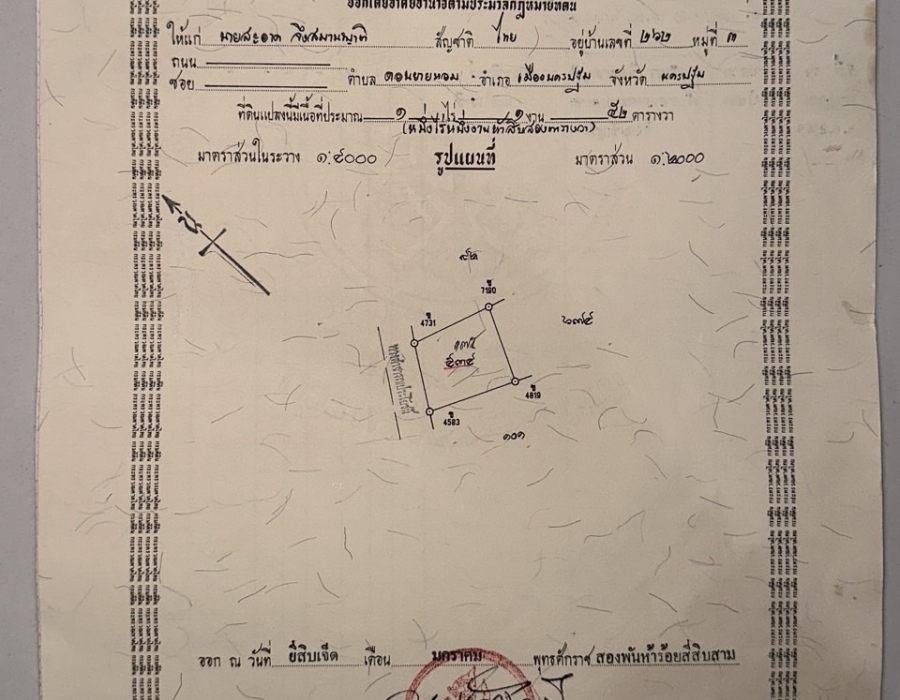 ออกโดยอาศัยอำนาจตามประมวลกฎหมายที่ดิน
ให้แก่ นายสะอาด จึงสมานญาติ สัญชาติ ไทย อยู่บ้านเลขที่ ๒๖๒ หมู่ที่ ๓
ถนน
ซอย ตำบล ดอนยายหอม อำเภอ เมืองนครปฐม จังหวัด นครปฐม
ที่ดินแปลงนี้มีเนื้อที่ประมาณ ๑ ไร่ ๑ งาน ๕๒ ตารางวา
(หนึ่งไร่หนึ่งงานห้าสิบสองตารางวา)
มาตราส่วนในระวาง ๑:๔๐๐๐ รูปแผนที่ มาตราส่วน ๑:๒๐๐๐
น
7190
4731
๑๓๕
๕๓๔
4819
4583
๑๐๑
ออก ณ วันที่ ยี่สิบเจ็ด เดือน มกราคม พุทธศักราช สองพันห้าร้อยสี่สิบสาม